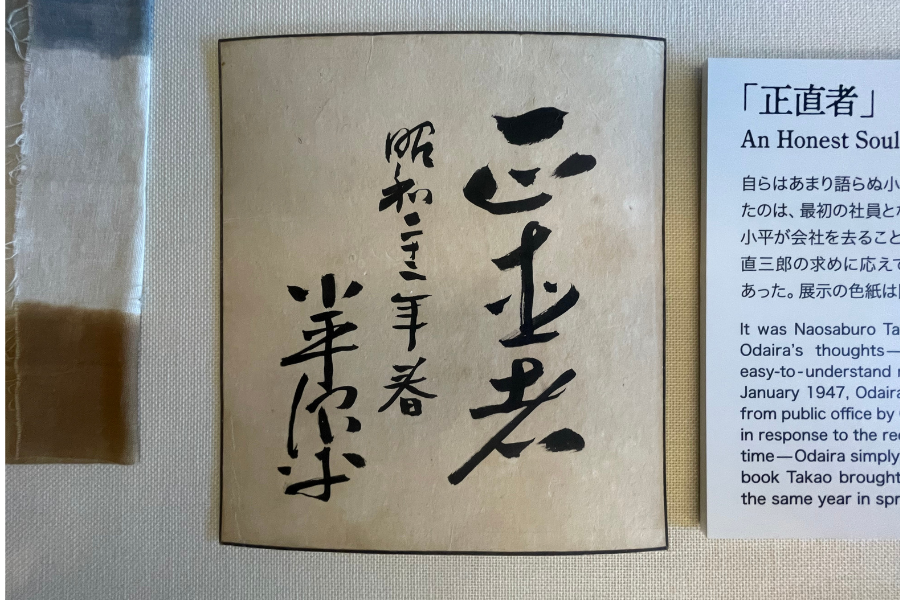 正直者
昭和二十二年春
小平浪平
「正直者」
An Honest Soul
自らはあまり語らぬ小
たのは、最初の社員と
小平が会社を去ること
直三郎の求めに応えて
あった。展示の色紙は
It was Naosaburo Ta
Odaira's thoughts—
easy-to-understand
January 1947, Odaira
from public office by
in response to the re
time—Odaira simply
book Takao brought
the same year in spr